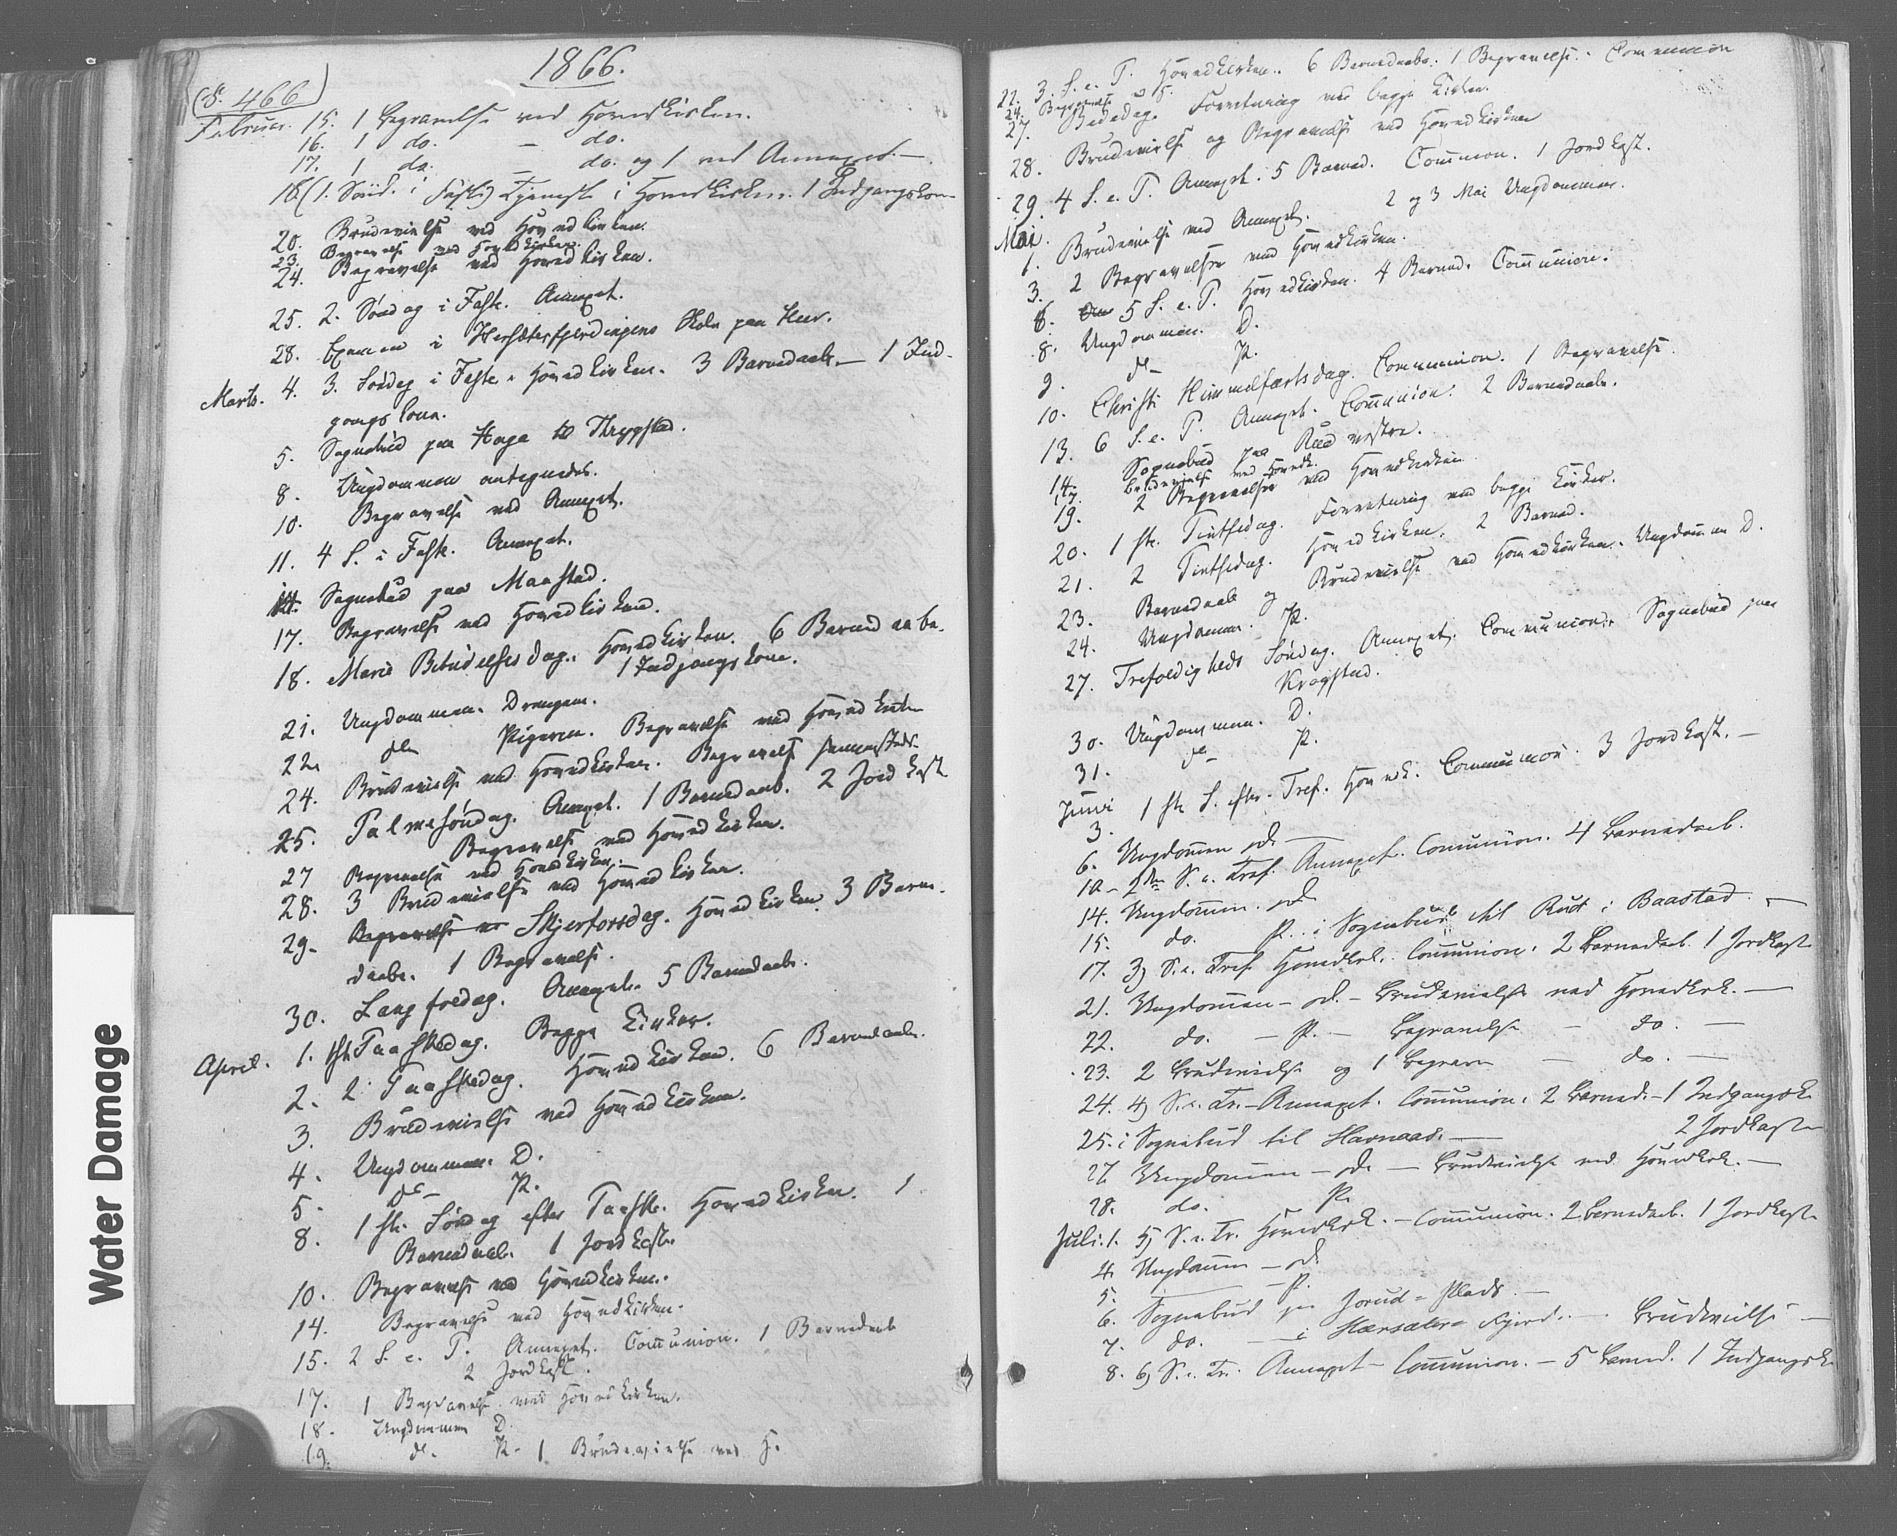 1866.
(S. 466)
Februar. 15. 1 Begravelse ved Hovedkirken.
16. 1 do. — do.
17. 1 do. — do. og 1 ved Annexet. —
18. (1. Sönd. i Faste) Tjeneste i Hovedkirken. 1 Indgangskone
20. Brudevielse ved Hovedkirken.
23. Begravelse ved Hovedkirken.
24. Begravelse ved Hovedkirken.
25. 2. Söndag i Faste. Annexet.
28. Examen i Hersæterfjerdingens Skole paa Huer.
Marts. 4. 3. Söndag i Faste. Hovedkirken. 3 Barnedaab. — 1 Ind-
gangskone.
5. Sognebud paa Haga til Thrygstad.
8. Ungdommen antegnedes.
10. Begravelse ved Annexet.
11. 4 S. i Faste. Annexet.
14. Sognebud paa Maastad.
17. Begravelse ved Hovedkirken.
18. Mariæ Bebudelsesdag. Hovedkirken. 6 Barnedaabe.
1 Indgangskone.
21. Ungdommen. Drengene.
22. do Pigerne. Begravelse ved Hovedkirken
24. Brudevielse ved Hovedkirken. Begravelse sammesteds.
25. Palmesöndag. Annexet. 1 Barnedaab. 2 Jordkast
Begravelse ved Hovedkirken.
27 Begravelse ved Hovedkirken.
28. 3 Brudevielse ved Hovedkirken.
29. Begravelse ve Skjertorsdag. Hovedkirken. 3 Barne-
daabe. 1 Begravelse.
30. Langfredag. Annexet. 5 Barnedaabe.
April. 1. 1ste Paaskedag. Begge Kirker.
2. 2. Paaskedag. Hovedkirken. 6 Barnedaabe.
3. Brudevielse ved Hovedkirken.
4. Ungdommen. D.
5. do P.
8. 1ste Söndag efter Paaske. Hovedkirken. 1
Barnedaab. 1 Jordkast.
10. Begravelse ved Hovedkirken.
14. Begravelse ved Hovedkirken.
15. 2 S. e. P. Annexet. Communion. 1 Barnedaab
2 Jordkast.
17. 1 Begravelse ved Hovedkirken.
18. Ungdommen D.
19. do. P. 1 Brudevielse ved H.
22. 3. S. e. P. Hovedkirken. 6 Barnedaabe. 1 Begravelse. Communion
24. Begravelse v H.
27. Bededag. Forretning ved begge Kirker.
28. Brudevielse og Begravelse ved Hovedkirken
29. 4 S. e. P. Annexet. 5 Barned. Commun. 1 Jordkast.
Mai. 2 og 3 Mai Ungdommen.
1. Brudevielse ved Annexet.
3. 2 Begravelser ved Hovedkirken.
6. 5 S. e. P. Hovedkirken. 4 Barned. Communion.
8. Ungdommen. D.
9. do P.
10. Christi Himmelfartsdag. Communion. 1 Begravelse.
13. 6 S. e. P. Annexet. Communion. 2 Barnedaab.
14. Sognebud paa Rud vestre.
17. Brudevielse ved Hovedk.
19. 2 Begravelser ved Hovedkirken
20. 1ste Pintsedag. Forretning ved begge Kirker.
21. 2 Pintsedag. Hovedkirken. 2 Barned.
23. Barnedaab og Brudevielse ved Hovedkirken. Ungdommen D.
24. Ungdommen. P.
27. Trefoldigheds Söndag. Annexet. Communion. Sognebud paa
Kragstad.
30. Ungdommen. D.
31. do P.
Juni
3. 1ste S. efter Tref. Hovedk. Communion. 3 Jordkast. —
6. Ungdommen d. —
10. 2den S. e. Tref. Annexet. Communion. 4 Barnedaab.
14. Ungdomm. d.
15. do. P. i Sognebud til Rud i Baastad. —
17. 3) S. e. Tref. Hovedkrk. Communion. 2 Barnedaab. 1 Jordkast
21. Ungdommen — d. — Brudevielse ved Hovedkrk. —
22. do. — P. — Begravelse — do. —
23. 2 Brudevielse og 1 Begrav — do. —
24. 4) S. e. Tr. — Annexet. Communion. 2 Barned. — 1 Indgangsk.
2 Jordkast
25. i Sognebud til Havnaas. —
27. Ungdommen — d. — Brudevielse ved Hovedkrk. —
28. do. P.
Juli. 1. 5) S. e. Tr. Hovedkrk. — Communion. 2 Barnedaab. 1 Jordkast
4. Ungdomm — d.
5. — P.
6. Sognebud paa Jorud = Plads. —
7. do. — i Hærsæter = Fjerd. — Brudevielse —
8. 6) S. e. Tr. Annexet — Communion. — 5 Barned. 1 Indgangsk.
Water Damage